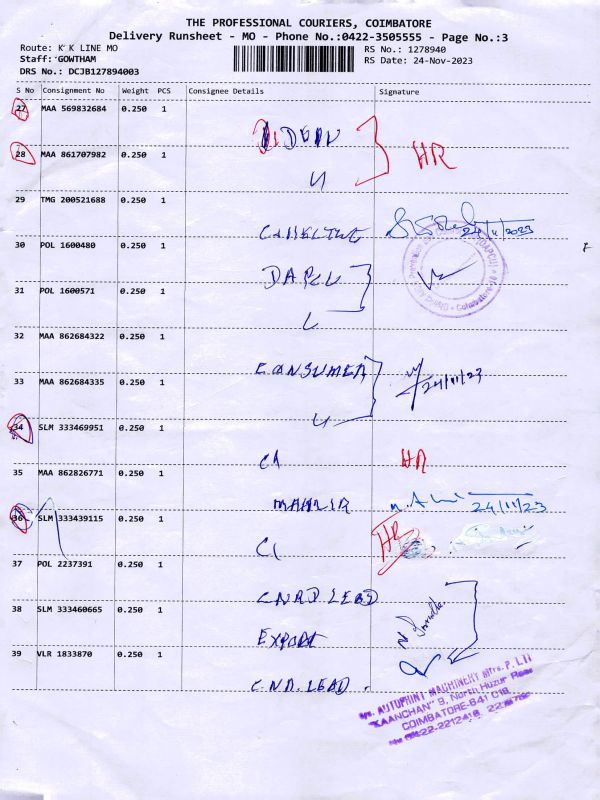 THE PROFESSIONAL COURIERS, COIMBATORE
Delivery Runsheet - MO - Phone No.:0422-3505555 - Page No.:3
Route: K K LINE MO
RS No.: 1278940
Staff: GOWTHAM
RS Date: 24-Nov-2023
DRS No.: DCJB127894003
S No Consignment No Weight PCS Consignee Details Signature
27 MAA 569832684 0.250 1
28 MAA 861707982 0.250 1 HR
29 TMG 200521688 0.250 1 24/11/2023
30 POL 1600480 0.250 1 DAPCU
31 POL 1600571 0.250 1
32 MAA 862684322 0.250 1 CONSUMER
33 MAA 862684335 0.250 1 24/11/23
34 SLM 333469951 0.250 1 CI HR
35 MAA 862826771 0.250 1 24/11/23
36 SLM 333439115 0.250 1 CI HR
37 POL 2237391 0.250 1 LEAD
38 SLM 333460665 0.250 1 EXPORT
39 VLR 1833870 0.250 1 LEAD
M/s. AUTOPRINT MACHINERY Mfrs. P. LTD
"KAANCHAN" 9, North Huzur Road
COIMBATORE-641 018